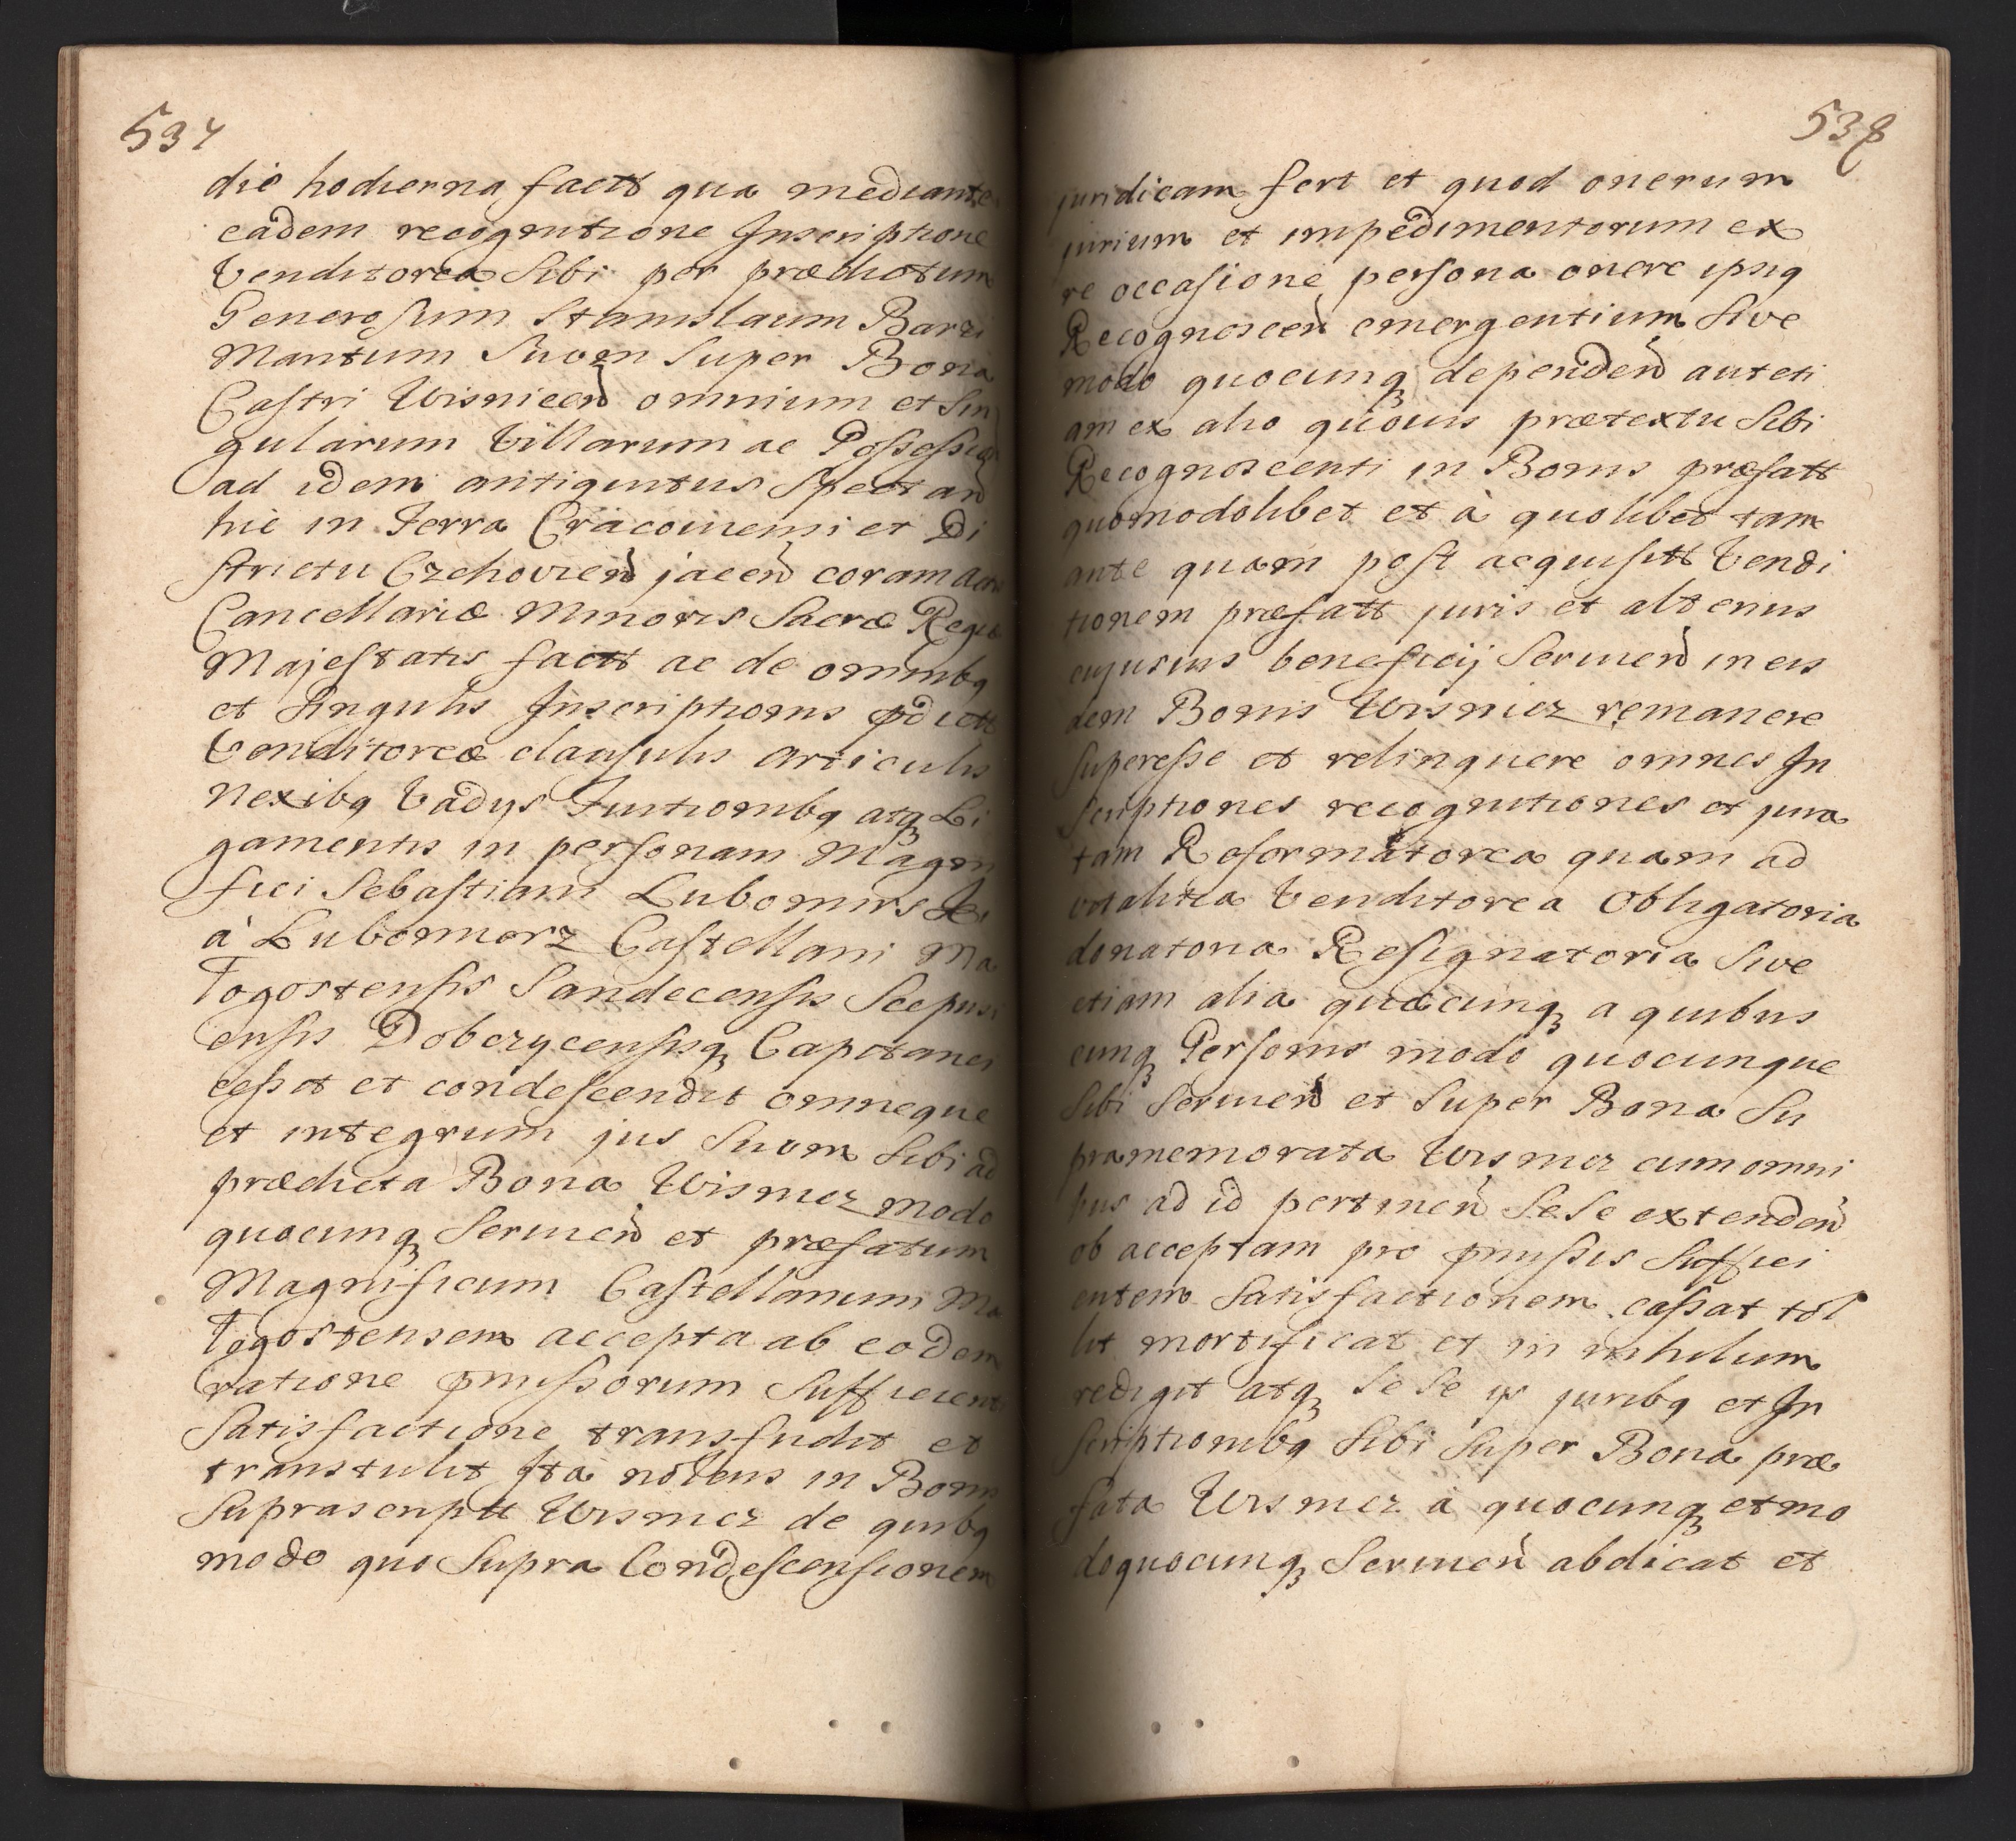 537
die hodierna factt qua mediante
eadem recognitione Inscriptione
Venditorea Sibi per prædictum
Generosum Stanislaum Barzi
Maritum Suom Super Bona
Castri Wisnicen omnium et Sin
gularum Villarum ac Possession
ad idem antiquitus Spectan
hic in Terra Cracoviensi et Di
strictu Czchovien jacen coram Actis
Cancellariæ Minoris Sacræ Regiæ
Majestatis factt ac de omnibq
et Singulis Inscriptionis pdictt
Venditoreæ clausulis articulis
Nexibq Vadys Tuitionibq atq Li
gamentis in personam Magni
fici Sebastiani Lubomirski
à Lubomierz Castellani Ma
łogostensis Sandecensis Scepusi
ensis Dobczycensisq Capitanei
cessit et condescendit omneque
et integrum jus Suom Sibi ad
prædicta Bona Wisnicz modo
quocunq Servien et præfatum
Magnificum Castellanum Ma
łogostensem accepta ab eodem
ratione pmissorum Sufficienti
Satisfactione transfudit et
transtulit Ita nolens in Bonis
Suprascriptt Wisnicz de quibq
modo quo Supra Condescensionem
538
juridicam fert et quod onerum
jurium et impedimentorum ex
re occasione persona onere ipsiq
Recognoscen emergentium Sive
modo quocunq dependen aut eti
am ex alio quovis prætextu Sibi
Recognoscenti in Bonis præfatt
quomodolibet et à quolibet tam
ante quam post acquisitt Vendi
tionem præfatt juris et alterius
cujusvis beneficij Servien in eis
dem Bonis Wisnicz remanere
Superesse et relinquere omnes In
scriptiones recognitiones et jura
tam Reformatorea quam ad
vitalitia Venditorea Obligatoria
donatoria Resignatoria Sive
etiam alia quæcunq a quibus
cunq Personis modo quocunque
Sibi Servien et Super Bona Su
pramemorata Wisnicz cum omni
bus ad id pertinen Sese extenden
ob acceptam pro pmissis Suffici
entem Satisfactionem cassat tol
lit mortificat et in nihilum
redigit atq Se Se ijs juribq et In
scriptionibq Sibi Super Bona præ
fata Wisnicz a quocunq et mo
do quocunq Servien abdicat et